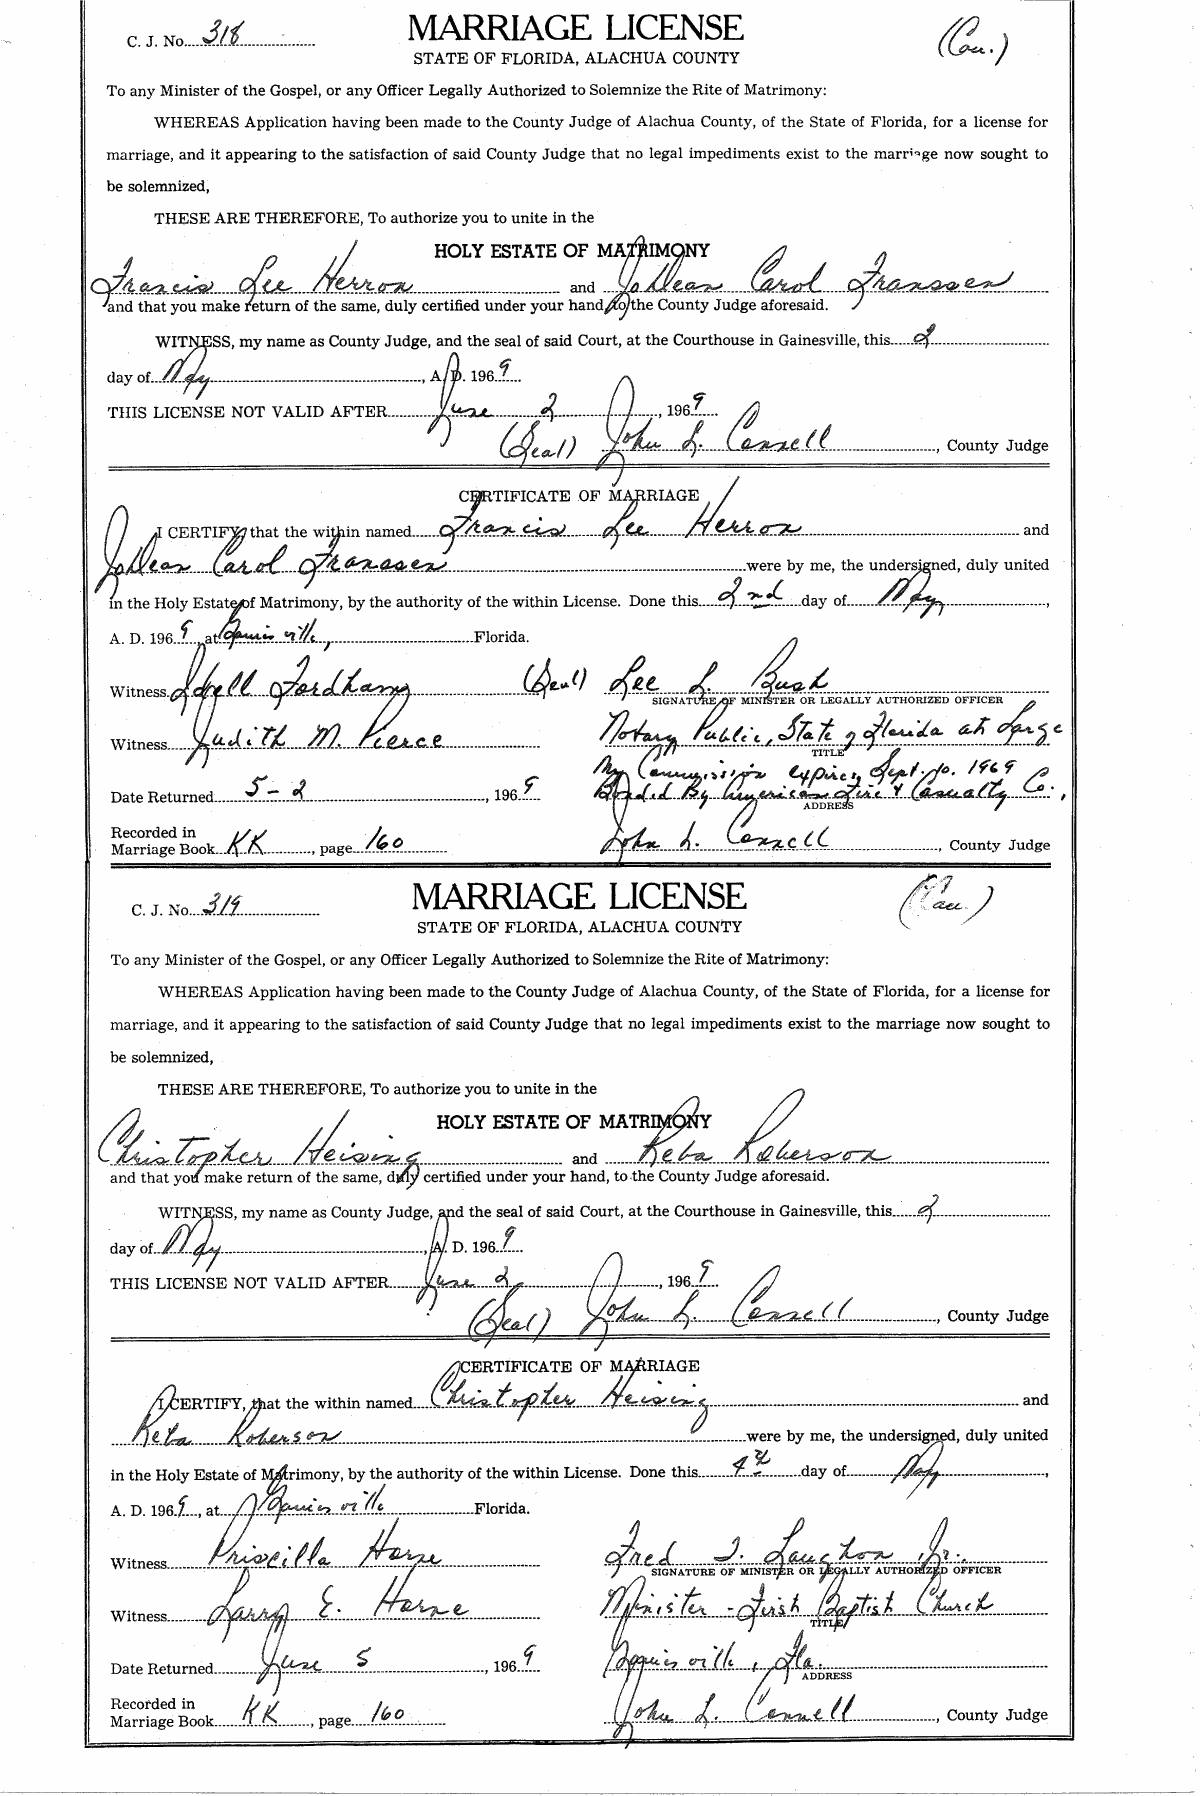 C. J. No. 318
MARRIAGE LICENSE
(Cau.)
STATE OF FLORIDA, ALACHUA COUNTY
To any Minister of the Gospel, or any Officer Legally Authorized to Solemnize the Rite of Matrimony:
WHEREAS Application having been made to the County Judge of Alachua County, of the State of Florida, for a license for
marriage, and it appearing to the satisfaction of said County Judge that no legal impediments exist to the marriage now sought to
be solemnized,
THESE ARE THEREFORE, To authorize you to unite in the
HOLY ESTATE OF MATRIMONY
Francis Lee Herron and JoDean Carol Franssen
and that you make return of the same, duly certified under your hand, to the County Judge aforesaid.
WITNESS, my name as County Judge, and the seal of said Court, at the Courthouse in Gainesville, this 2
day of May, A. D. 1969
THIS LICENSE NOT VALID AFTER June 2, 1969
(Seal) John L. Connell, County Judge
CERTIFICATE OF MARRIAGE
I CERTIFY, that the within named Francis Lee Herron and
JoDean Carol Franssen were by me, the undersigned, duly united
in the Holy Estate of Matrimony, by the authority of the within License. Done this 2nd day of May,
A. D. 1969, at Gainesville, Florida.
Witness Fordham (Seal) Lee L. Bush
SIGNATURE OF MINISTER OR LEGALLY AUTHORIZED OFFICER
Witness Judith M. Pierce Notary Public, State of Florida at Large
TITLE
My Commission expires Sept. 10. 1969
Date Returned 5-2, 1969 Bonded By American Fire & Casualty Co.,
ADDRESS
Recorded in
Marriage Book KK, page 160 John L. Connell, County Judge
C. J. No. 319
MARRIAGE LICENSE
(Cau.)
STATE OF FLORIDA, ALACHUA COUNTY
To any Minister of the Gospel, or any Officer Legally Authorized to Solemnize the Rite of Matrimony:
WHEREAS Application having been made to the County Judge of Alachua County, of the State of Florida, for a license for
marriage, and it appearing to the satisfaction of said County Judge that no legal impediments exist to the marriage now sought to
be solemnized,
THESE ARE THEREFORE, To authorize you to unite in the
HOLY ESTATE OF MATRIMONY
Christopher Heising and Reba Roberson
and that you make return of the same, duly certified under your hand, to the County Judge aforesaid.
WITNESS, my name as County Judge, and the seal of said Court, at the Courthouse in Gainesville, this 2
day of May, A. D. 1969
THIS LICENSE NOT VALID AFTER June 2, 1969
(Seal) John L. Connell, County Judge
CERTIFICATE OF MARRIAGE
I CERTIFY, that the within named Christopher Heising and
Reba Roberson were by me, the undersigned, duly united
in the Holy Estate of Matrimony, by the authority of the within License. Done this 4th day of May,
A. D. 1969, at Gainesville Florida.
Witness Priscilla Horne Fred T. Laughon, Jr.
SIGNATURE OF MINISTER OR LEGALLY AUTHORIZED OFFICER
Witness Larry E. Horne Minister - First Baptist Church
TITLE
Date Returned June 5, 1969 Gainesville, Fla.
ADDRESS
Recorded in
Marriage Book KK, page 160 John L. Connell, County Judge